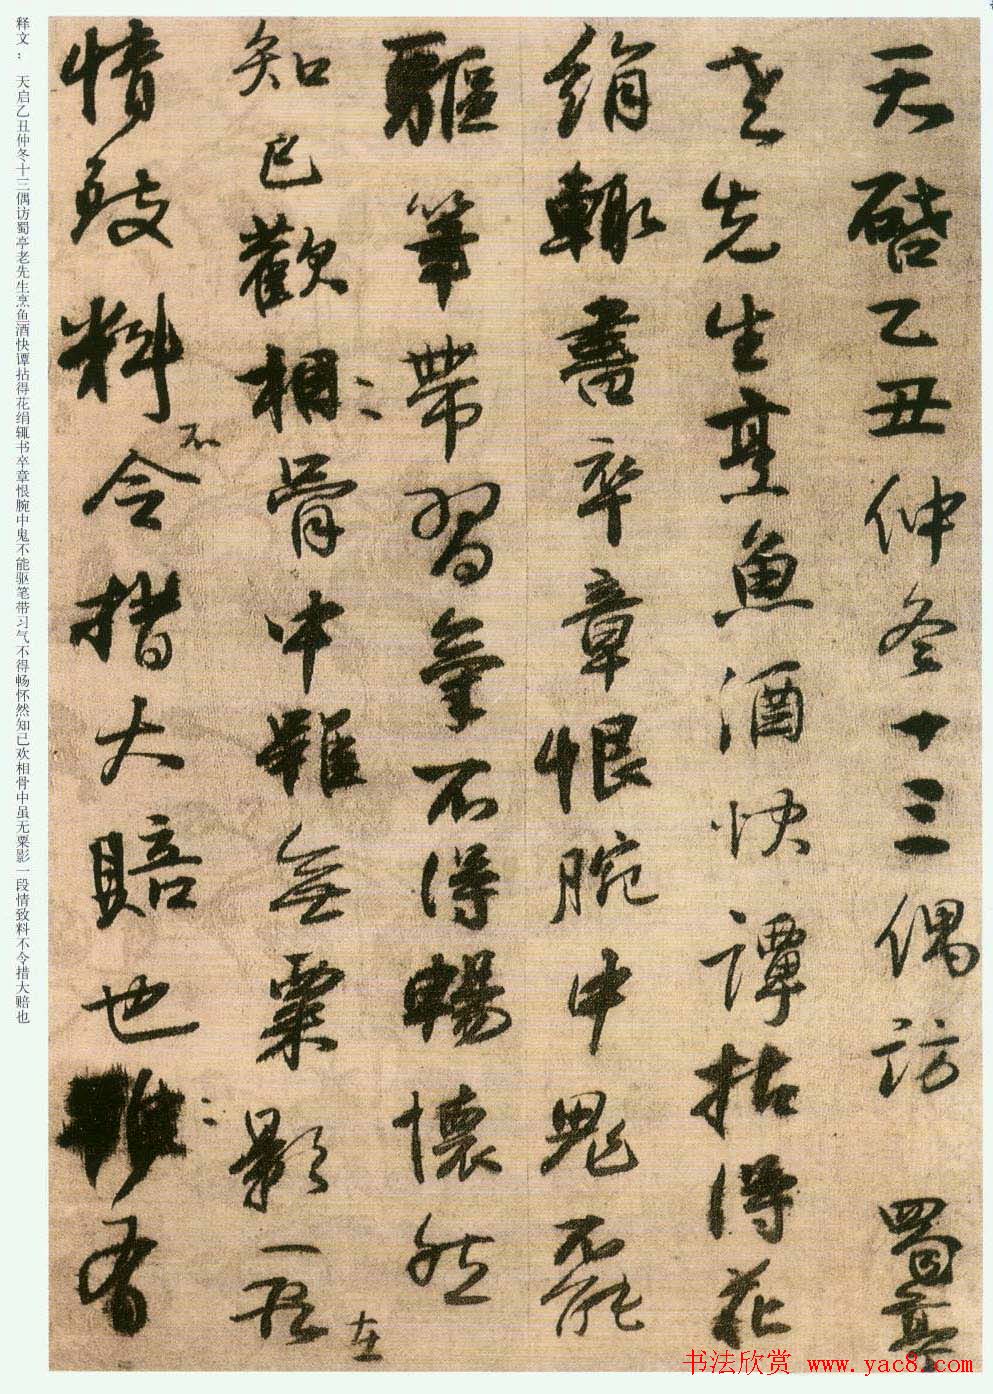 天啓乙丑仲冬十三偶訪蜀亭
老先生烹魚酒快譚拈得花
絹輒書卒章恨腕中鬼不能
驅筆帶習氣不得暢懷然
知已歡相骨中雖無粟影一段在
情致料不令措大賠也有
释文： 天启乙丑仲冬十三偶访蜀亭老先生烹鱼酒快谭拈得花绢辄书卒章恨腕中鬼不能驱笔带习气不得畅怀然知已欢相骨中虽无粟影一段情致料不令措大赔也
书法欣赏 www.yac8.com